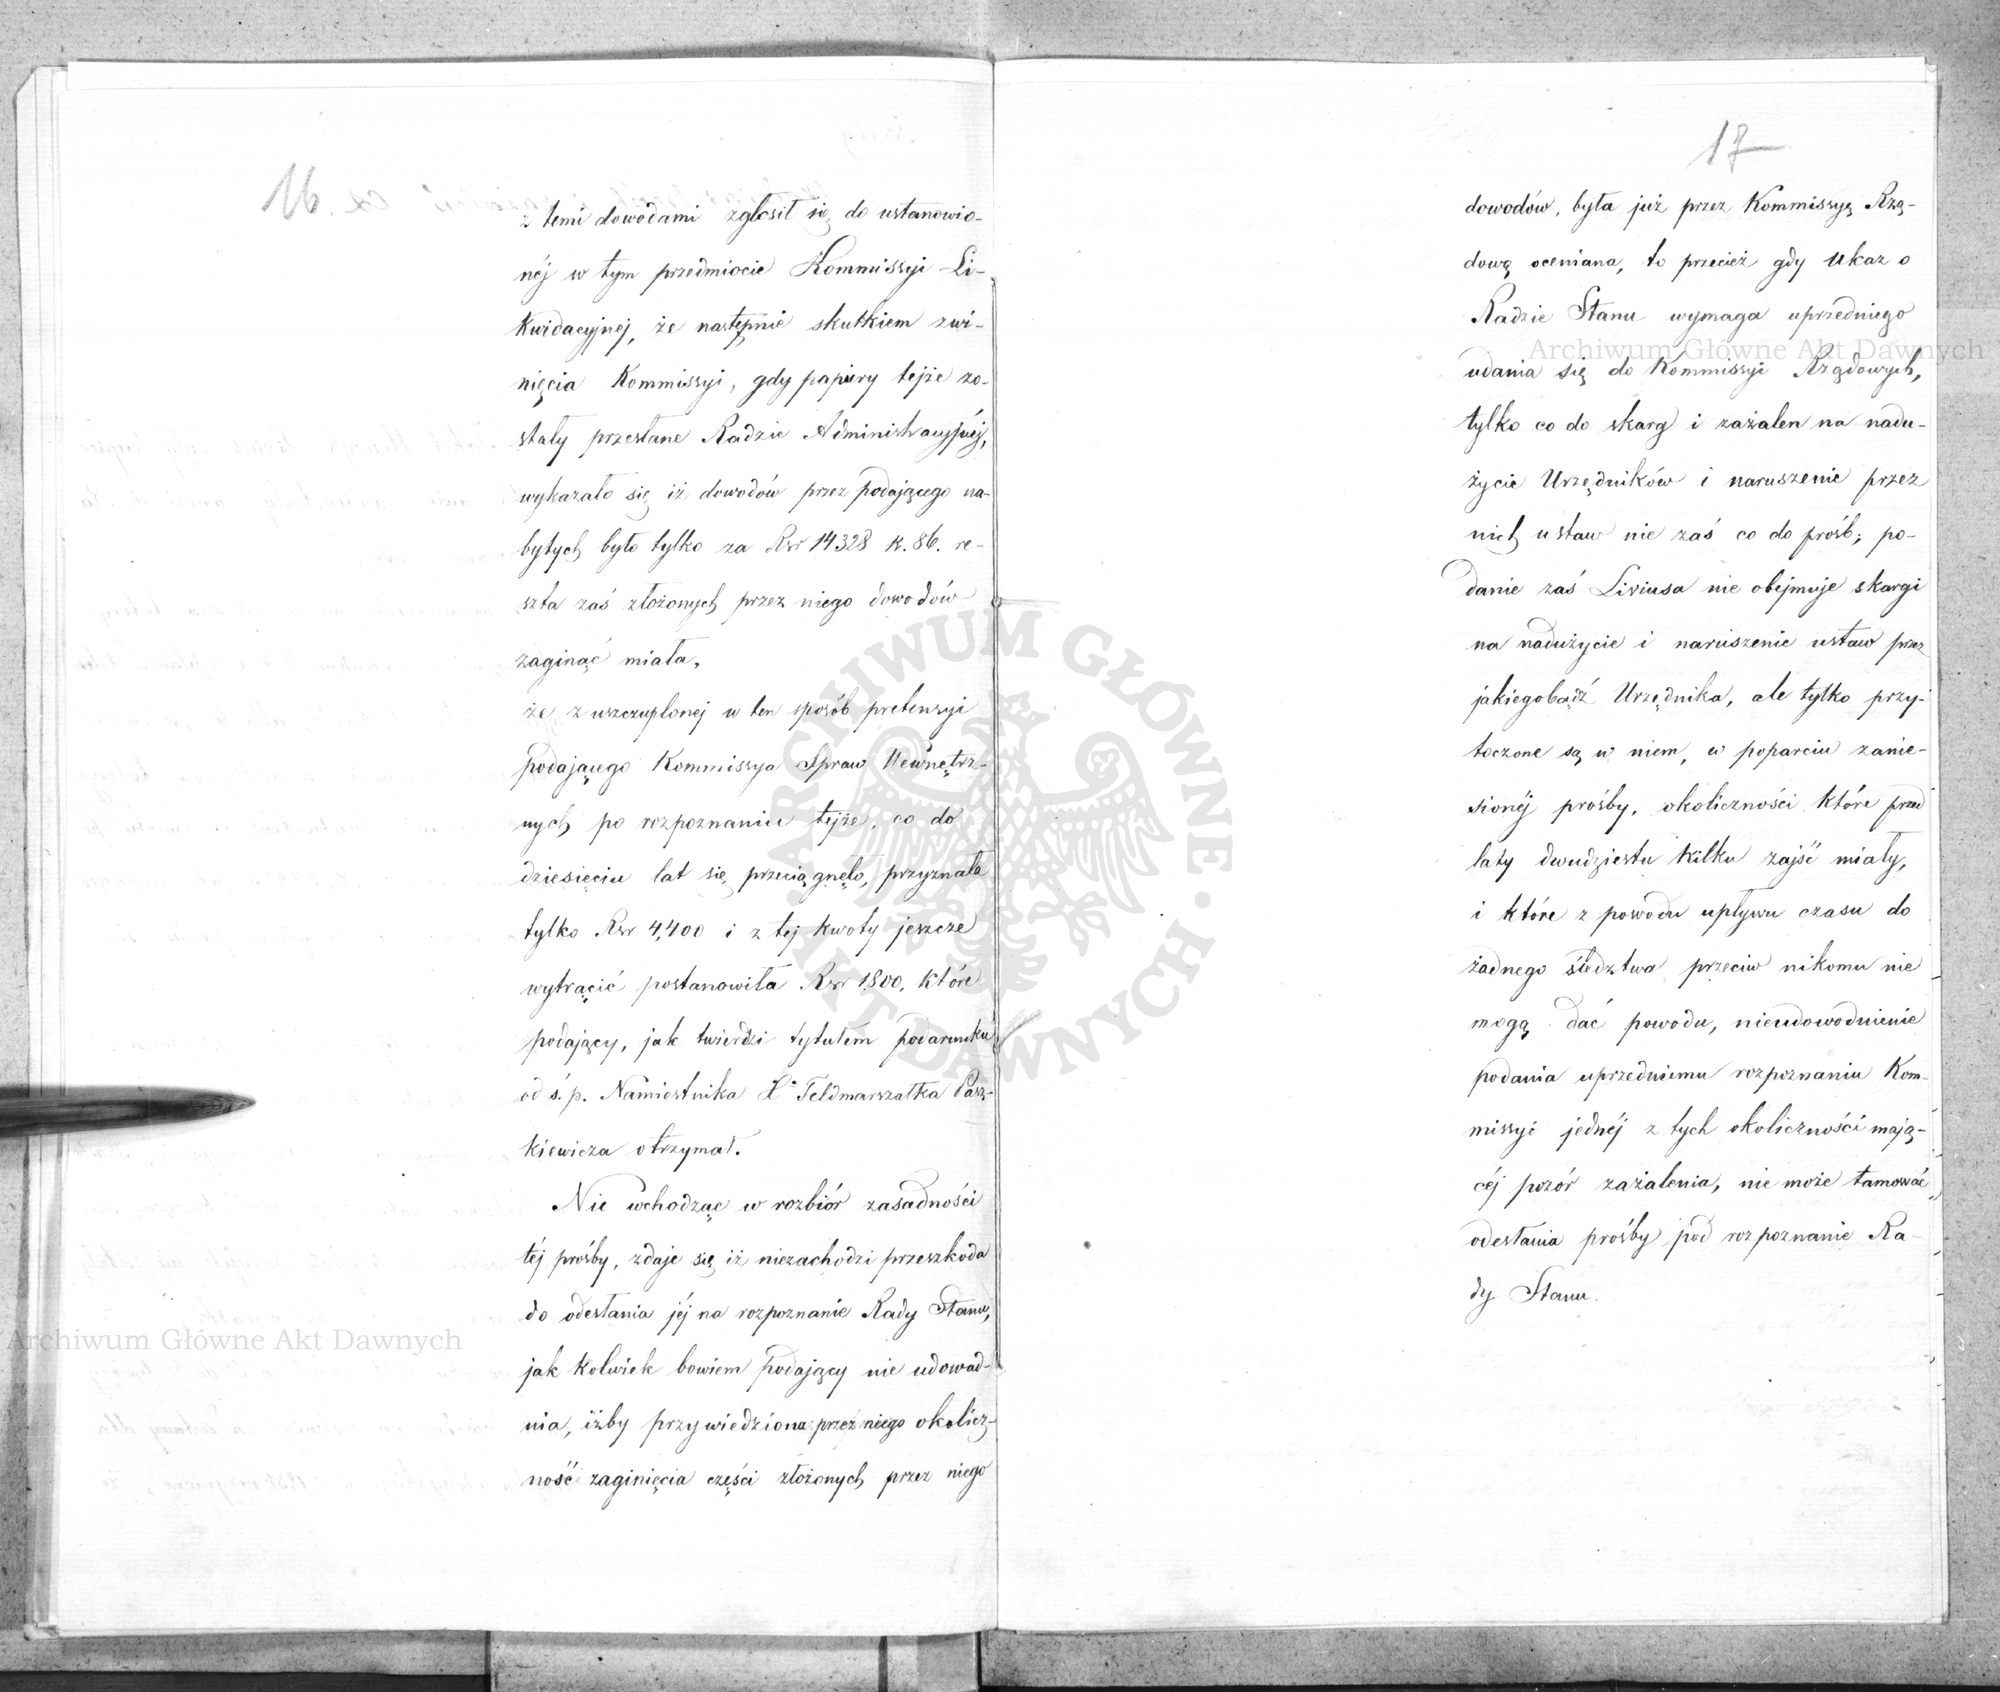 16.
z temi dowodami zgłosił się do ustanowio-
néj w tym przedmiocie Kommissyi Li-
kwidacyjnej, że następnie skutkiem zwi-
nięcia Kommissyi, gdy papiery tejże zo-
stały przesłane Radzie Administracyjnéj,
wykazało się iż dowodów przez podającego na-
bytych było tylko za Rsr 14328 k. 86. re-
szta zaś złożonych przez niego dowodów
zaginąć miała,
że z uszczuplonej w ten sposób pretensyi
podającego Kommissya Spraw Wewnętrz-
nych po rozpoznaniu tejże, co do
dziesięciu lat się przeciągnęło, przyznała
tylko Rsr 4,400 i z tej kwoty jeszcze
wytrącić postanowiła Rsr 1800, które
podający, jak twierdzi tytułem podarunku
od ś. p. Namiestnika Feldmarszałka Pasz-
kiewicza otrzymał.
Nie wchodząc w rozbiór zasadności
téj prośby, zdaje się iż niezachodzi przeszkoda
do odesłania jéj na rozpoznanie Rady Stanu,
jak kolwiek bowiem podający nie udowad-
nia, iżby przywiedziona przez niego okolicz-
ność zaginięcia części złożonych przez niego
17
dowodów, była już przez Kommissyę Rzą-
dową oceniana, to przecież gdy Ukaz o
Radzie Stanu wymaga uprzedniego
udania się do Kommissyi Rządowych,
tylko co do skarg i zażaleń na nadu-
życie Urzędników i naruszenie przez
nich ustaw nie zaś co do próśb; po-
danie zaś Liviusa nie obejmuje skargi
na nadużycie i naruszenie ustaw przez
jakiegobądź Urzędnika, ale tylko przy-
toczone są w niem, w poparciu zanie-
sionéj prośby, okoliczności które przed
laty dwudziestu kilku zajść miały,
i które z powodu upływu czasu do
żadnego śledztwa przeciw nikomu nie
mogą dać powodu, nieudowodnienie
podania uprzedniemu rozpoznaniu Kom-
missyi jednéj z tych okoliczności mają-
céj pozór zażalenia, nie może tamować
odesłania prośby pod rozpoznanie Ra-
dy Stanu.
Archiwum Główne Akt Dawnych
Archiwum Główne Akt Dawnych
ARCHIWUM GŁÓWNE AKT DAWNYCH